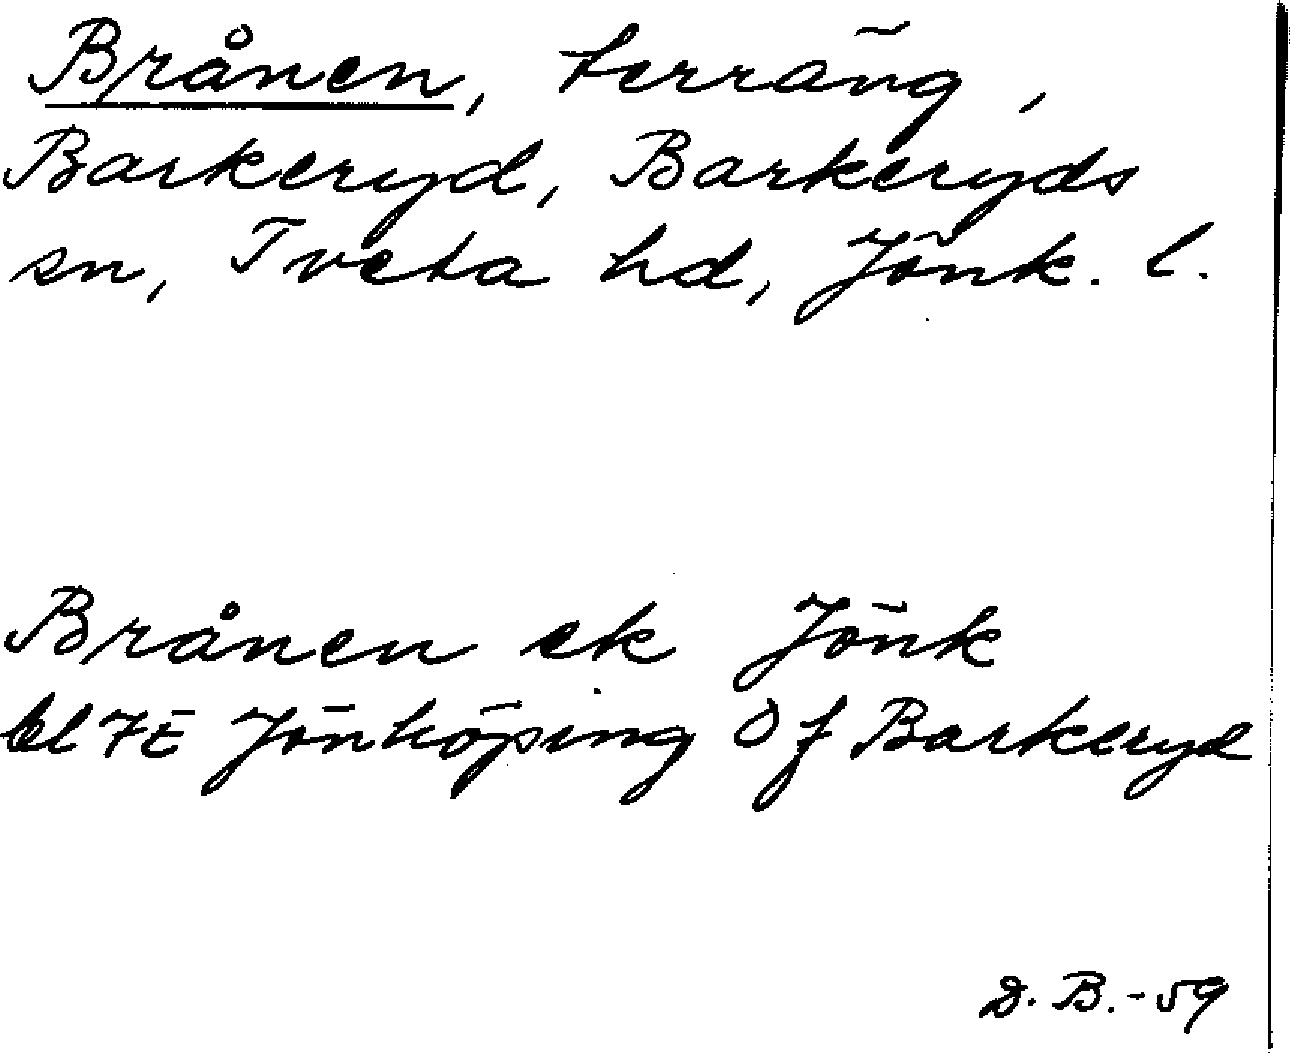 Brånen, terräng,
Barkeryd, Barkeryds
sn, Tveta hd, Jönk. l.
Brånen ek Jönk
bl 7E Jönköping Of Barkeryd
D. B.-59